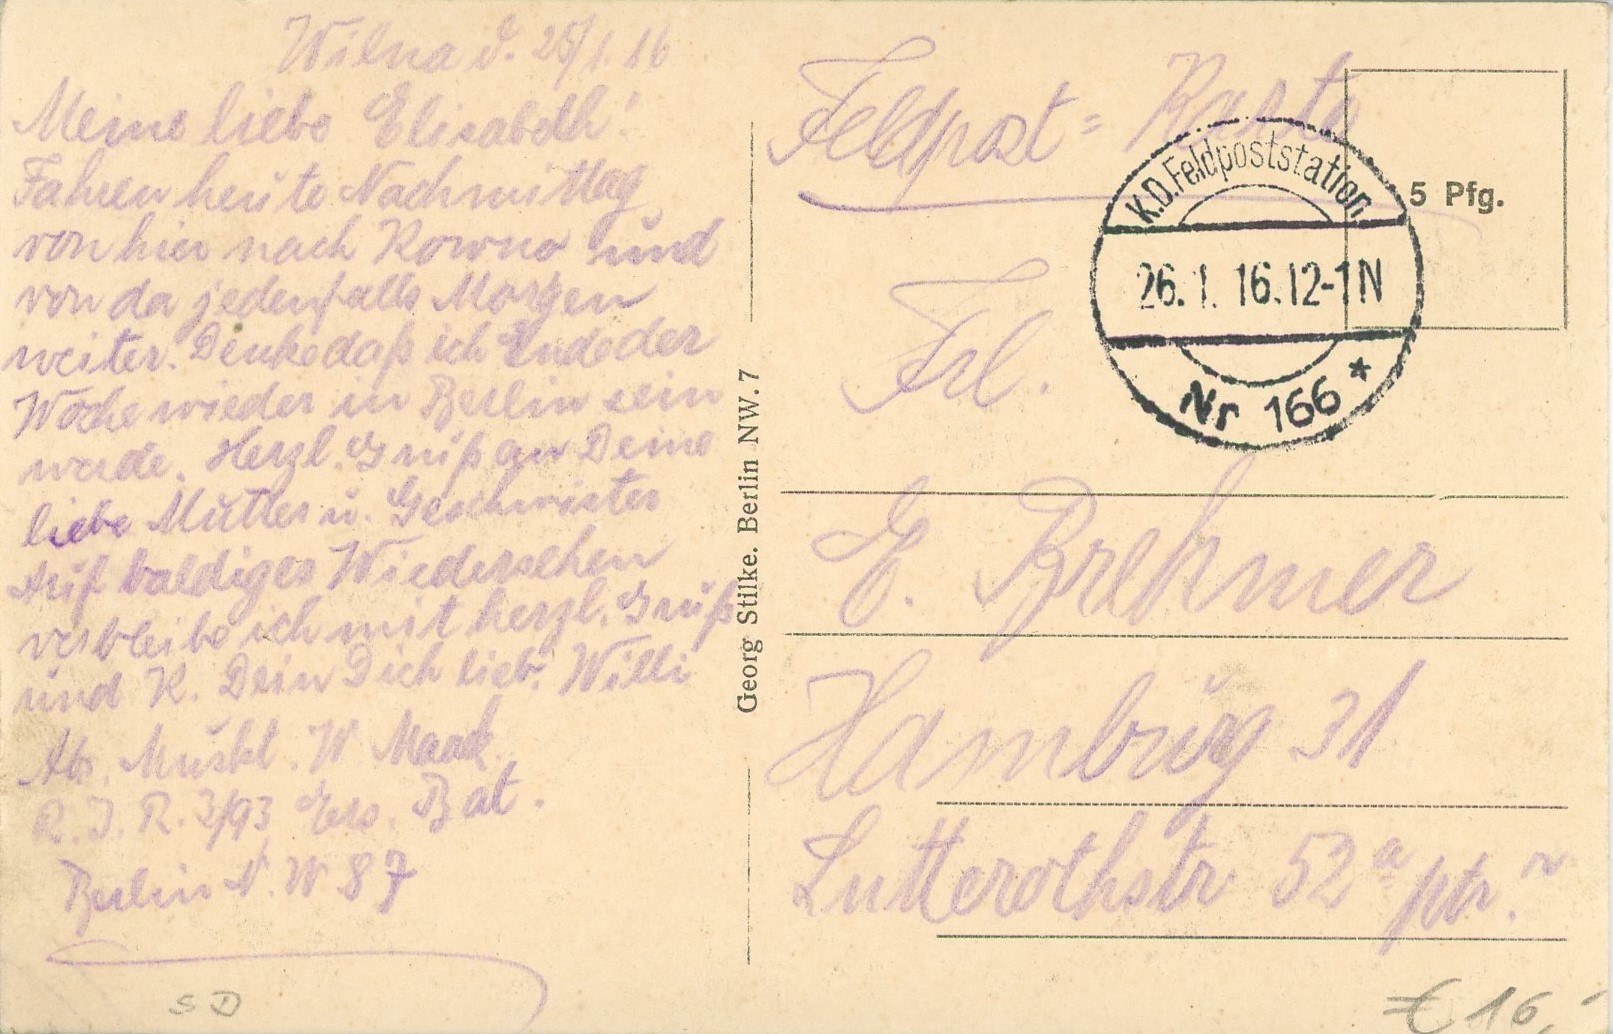 Wilna d. 25/1.16
Meine liebe Elisabeth!
Fahren heute Nachmittag
von hier nach Kowno und
von da jedenfalls Morgen
weiter. Denke daß ich Ende der
Woche wieder in Berlin sein
werde. Herzl. Gruß an Deine
liebe Mutter u. Geschwister
Auf baldiges Wiedersehen
verbleibe ich mit herzl. Gruß
und K. Dein Dich lieb. Willi
Abs. Muskt. W. Maack
R.I.R. 3/93 Ers. Bat.
Berlin N.W 87
SD
Georg Stilke. Berlin NW. 7
Feldpost=Karte
5 Pfg.
K.D.Feldpoststation
26.1.16.12-1N
Nr 166 *
Frl.
E. Brehmer
Hamburg 31
Lutterothstr 52a ptr.
€ 16,-